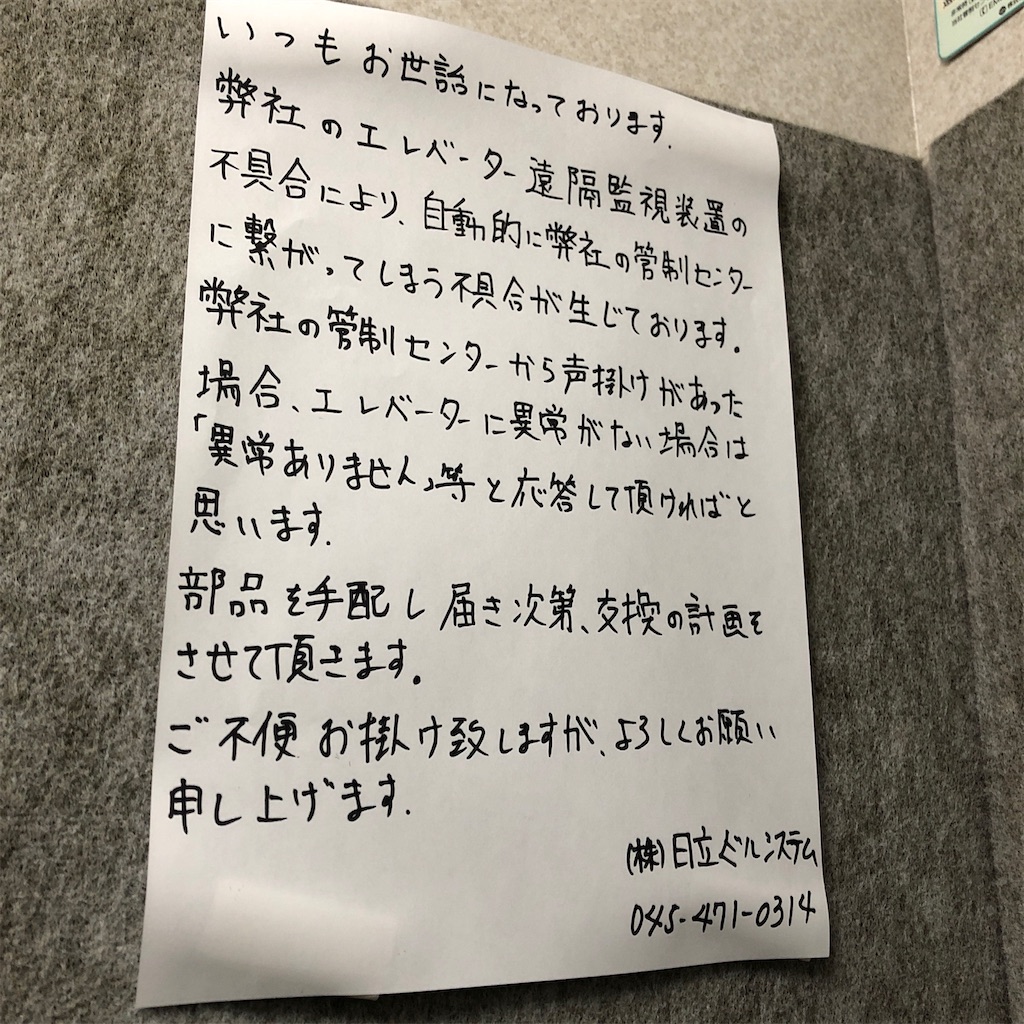 いつもお世話になっております.
弊社のエレベーター遠隔監視装置の
不具合により、自動的に弊社の管制センター
に繋がってしまう不具合が生じております。
弊社の管制センターから声掛けがあった
場合、エレベーターに異常がない場合は
「異常ありません」等と応答して頂ければと
思います.
部品を手配し届き次第、交換の計画を
させて頂きます。
ご不便お掛け致しますが、よろしくお願い
申し上げます.
(株)日立ビルシステム
045-471-0314